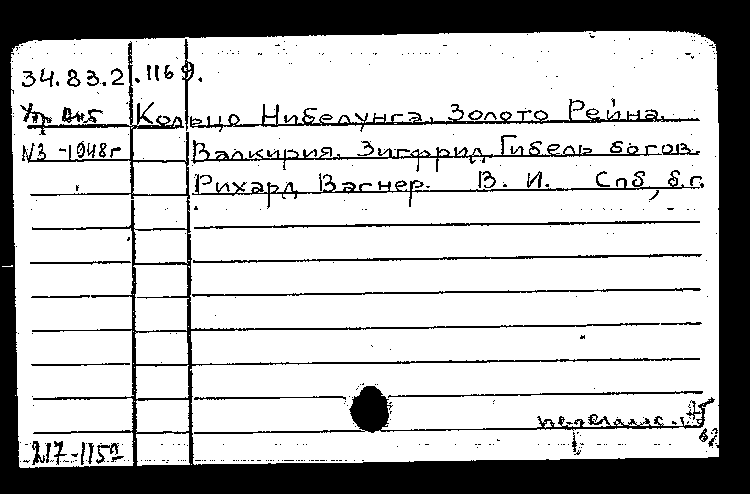 34.83.2.1169.
Кольцо Нибелунга. Золото Рейна.
N3 -1948г Валкирия. Зигфрид. Гибель богов.
Рихард Вагнер. В. И. Спб, б.г.
217-1159